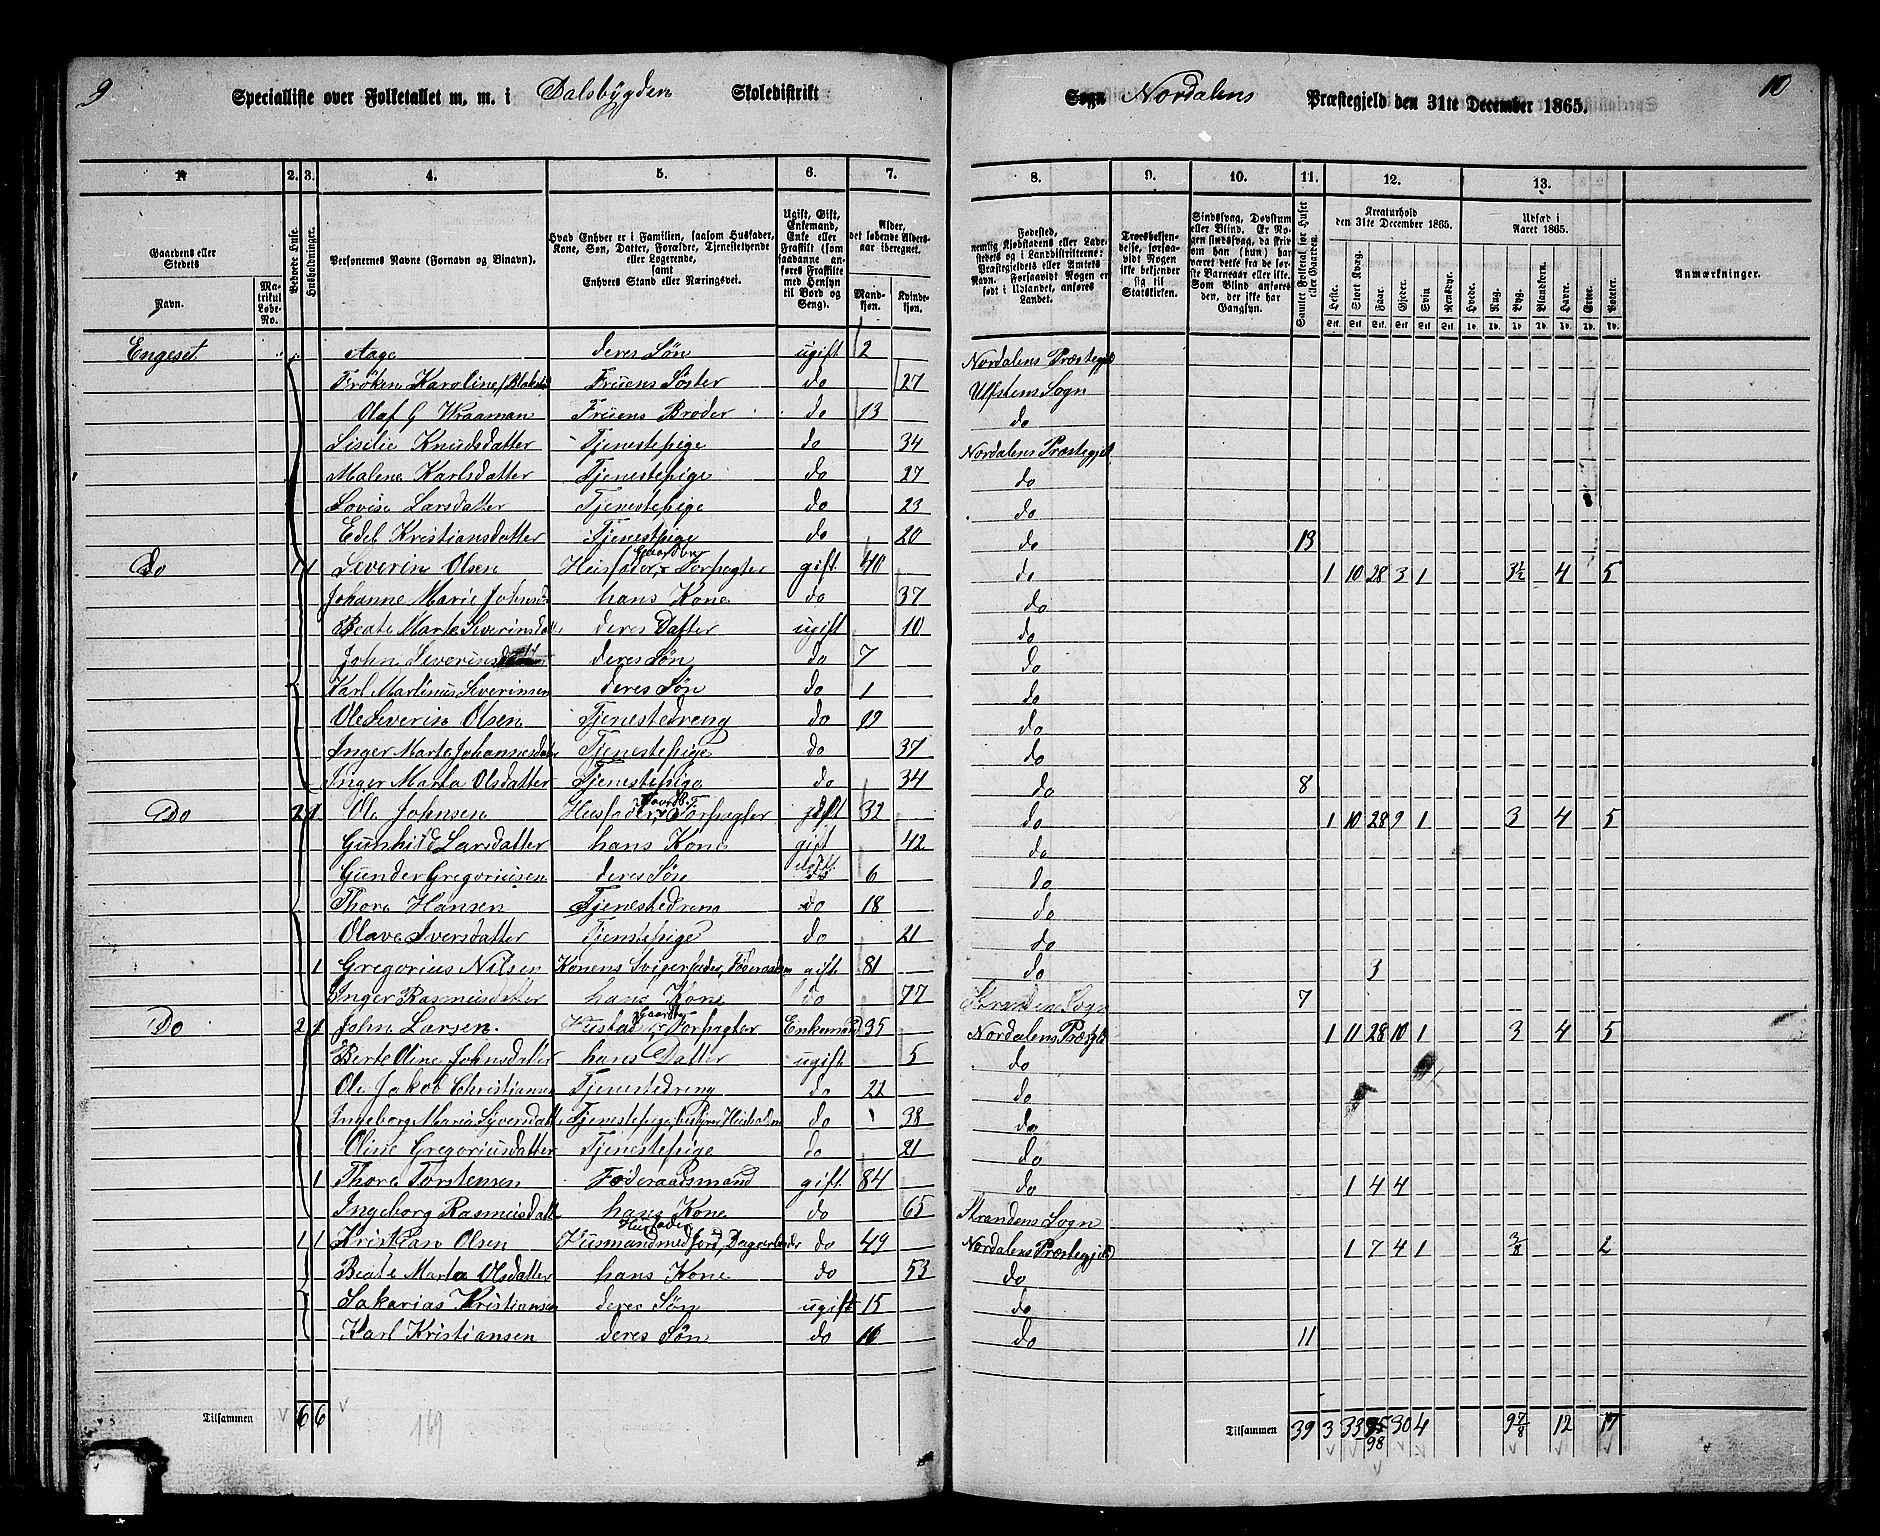 9 Specialliste over Folketallet m. m. i Dalsbygden Skoledistrikt Sogn Nordalens Præstegjeld den 31te December 1865. 10
1. 2. 3. 4. 5. 6. 7. 8. 9. 10. 11. 12. 13.
Gaardens eller Stedets Navn. Matrikul Løbe-No. Beboede Huse. Husholdninger. Personernes Navne (Fornavn og Binavn). Hvad Enhver er i Familien, saasom Husfader, Kone, Søn, Datter, Forældre, Tjenestetyende eller Logerende, samt Enhvers Stand eller Næringsvei. Ugift, Gift, Enkemand, Enke eller Fraskilt (som saadanne anføres Fraskilte med Hensyn til Bord og Seng). Alder, det løbende Aldersaar iberegnet. Mandkjøn. Kvindekjøn. Fødested, nemlig Kjøbstadens eller Ladestedets og i Landdistrikterne: Præstegjeldets eller Amtets Navn. Forsaavidt Nogen er født i Udlandet, anføres Landet. Troesbekjendelse, forsaavidt Nogen ikke bekjender sig til Statskirken. Sindssvag, Døvstum eller Blind. Er Nogen sindssvag, da hvorvidt han (hun) har været dette fra de første Barneaar eller ikke. Som Blind anføres den, der ikke har Gangsyn. Samlet Folketal for Huset eller Gaarden. Kreaturhold den 31te December 1865. Heste. Stort Kvæg. Faar. Gjeder. Svin. Rensdyr. Udsæd i Aaret 1865. Hvede. Rug. Byg. Blandkorn. Havre. Erter. Poteter. Anmærkninger.
Engeset Aage deres Søn ugift 2 Nordalens Præstegjld
Frøken Karoline Fruens Søster do 27 Ulfstens Sogn
Olaf G Wraaman Fruens Broder do 13 do
Lisilie Knudsdatter Tjenestepige do 34 Nordalens Præstegjel
Malene Karlsdatter Tjenestepige do 27 do
Lovise Larsdatter Tjenestepige do 23 do
Edel Kristiansdatter Tjenestpige do 20 do 13
Do 1 1 Severin Olsen Husfader, Gaardbr Forpagter gift 40 do 1 10 28 3 1 3½ 4 5
Johanne Marie Johnsd hans Kone do 37 do
Beate Marte Severinsdatt deres Datter ugift 10 do
John Severins deres Søn do 7 do
Karl Martinus Severinsen deres Søn do 1 do
Ole Severin Olsen Tjenestedreng do 19 do
Inger Marte Johannesdatter Tjenestepige do 37 do
Inger Marta Olsdatter Tjenestepige do 34 do 8
Do 2 1 Ole Johnsen Husfader, Gaardb. Forpagter gift 32 do 1 10 28 9 1 3 4 5
Gunhild Larsdatter hans Kone gift 42 do
Gunder Gregoriusen deres Søn ugift 6 do
Thore Hansen Tjenestedreng do 18 do
Olave Iversdatter Tjenstepige do 21 do
1 Gregorius Nilsen Konens Svigerfader, Føderaadsm gift 81 do 3
Inger Rasmusdatter hans Kone do 77 Strandens Sogn 7
Do 2 1 John Larsen. Husfad Gaardbr Forpagter Enkemand 35 Nordalens Præstgld 1 11 28 10 1 3 4 5
Berte Oline Johnsdatter hans Datter ugift 5 do
Ole Jakob Christiansen Tjenestedreng do 22 do
Ingeborg Maria Syversdatt Tjenestepige, bestyrer Husholdn do 38 do
Oline Gregoriusdatter Tjenestepige do 21 do
1 Thore Torstensen Føderaadsmand gift 84 do 1 4 4
Ingeborg Rasmusdatte hans Kone do 65 Strandens Sogn
1 1 Kristian Olsen Husfader Husmand med Jord, Dagarbeider do 49 Nordalens Præstegjeld 1 7 4 1 3/8 2
Beate Marta Olsdatter hans Kone do 53 do
Sakarias Kristiansen deres Søn ugift 15 do
Karl Kristiansen deres Søn do 10 do 11
Tilsammen 6 6 169 Tilsammen 39 3 33 95 98 30 4 9 7/8 12 17